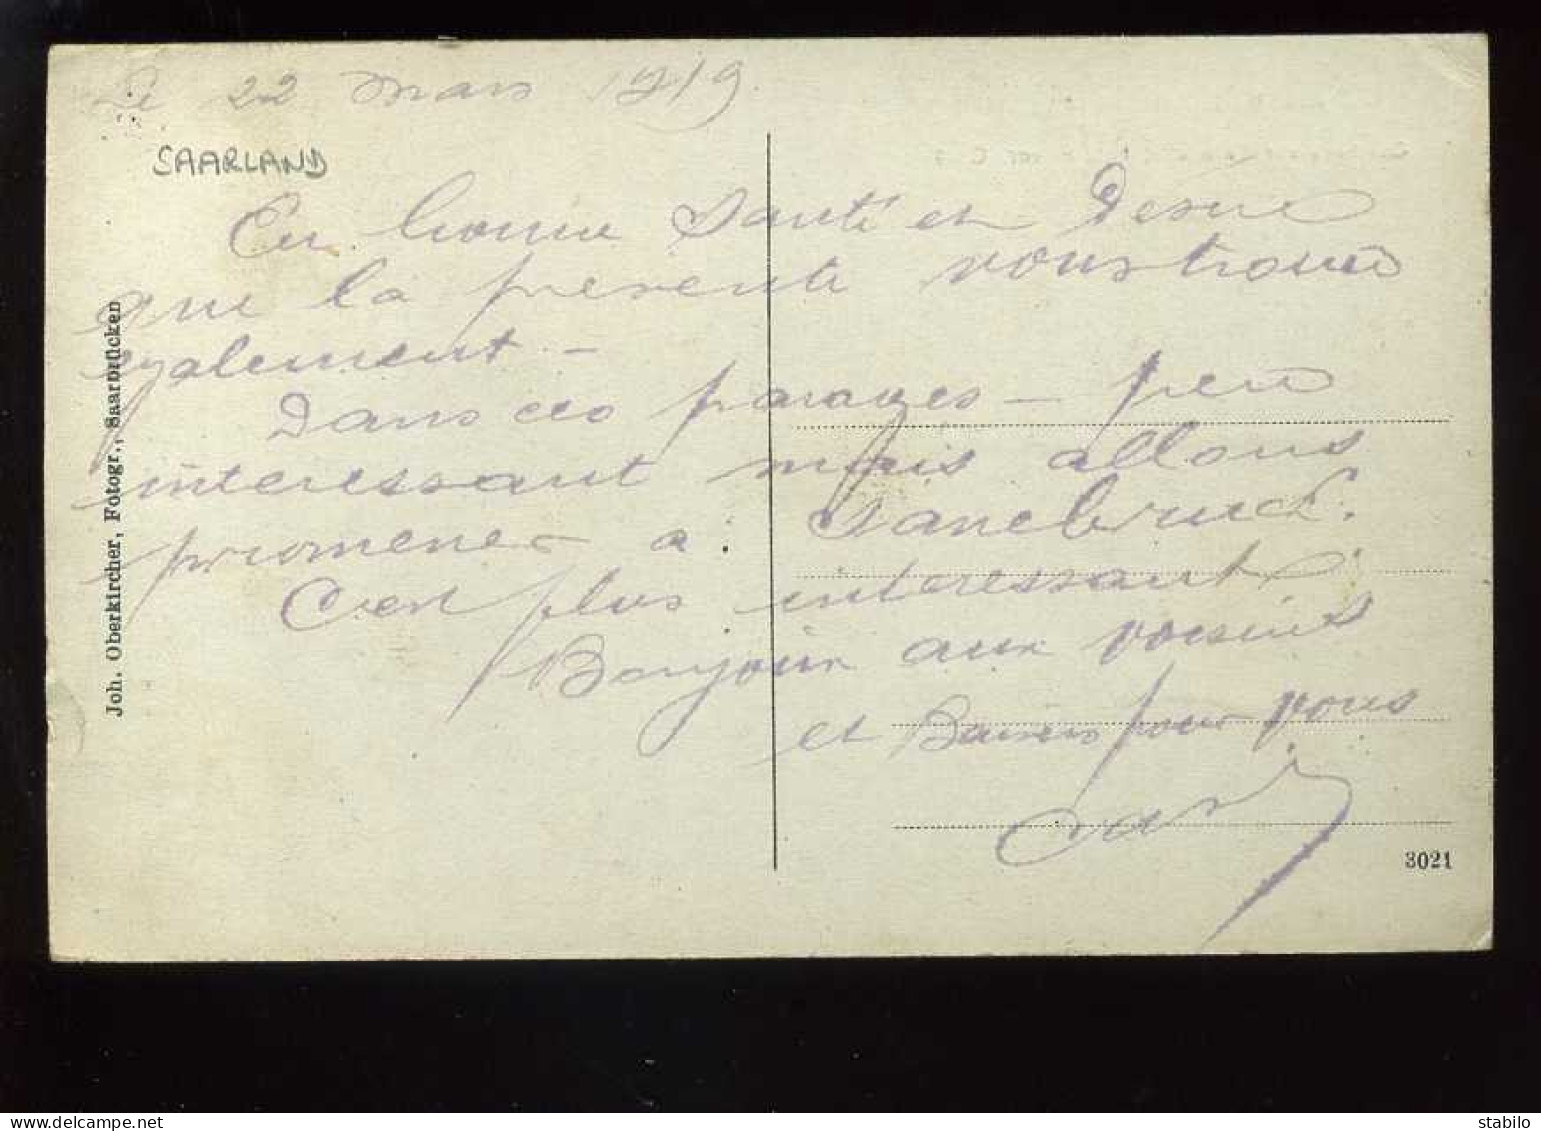 Le 22 mars 1919.
SAARLAND
En bonne Santé et Desire
que la presente vous trouve
egalement -
Dans ces parages - peu
interessant mais allons
promener a Sarrebruck.
C'est plus interessant
Bonjour aux voisins
et Baisers pour vous
Joh. Oberkircher, Fotogr., Saarbrücken
3021
delcampe.net
stabilo